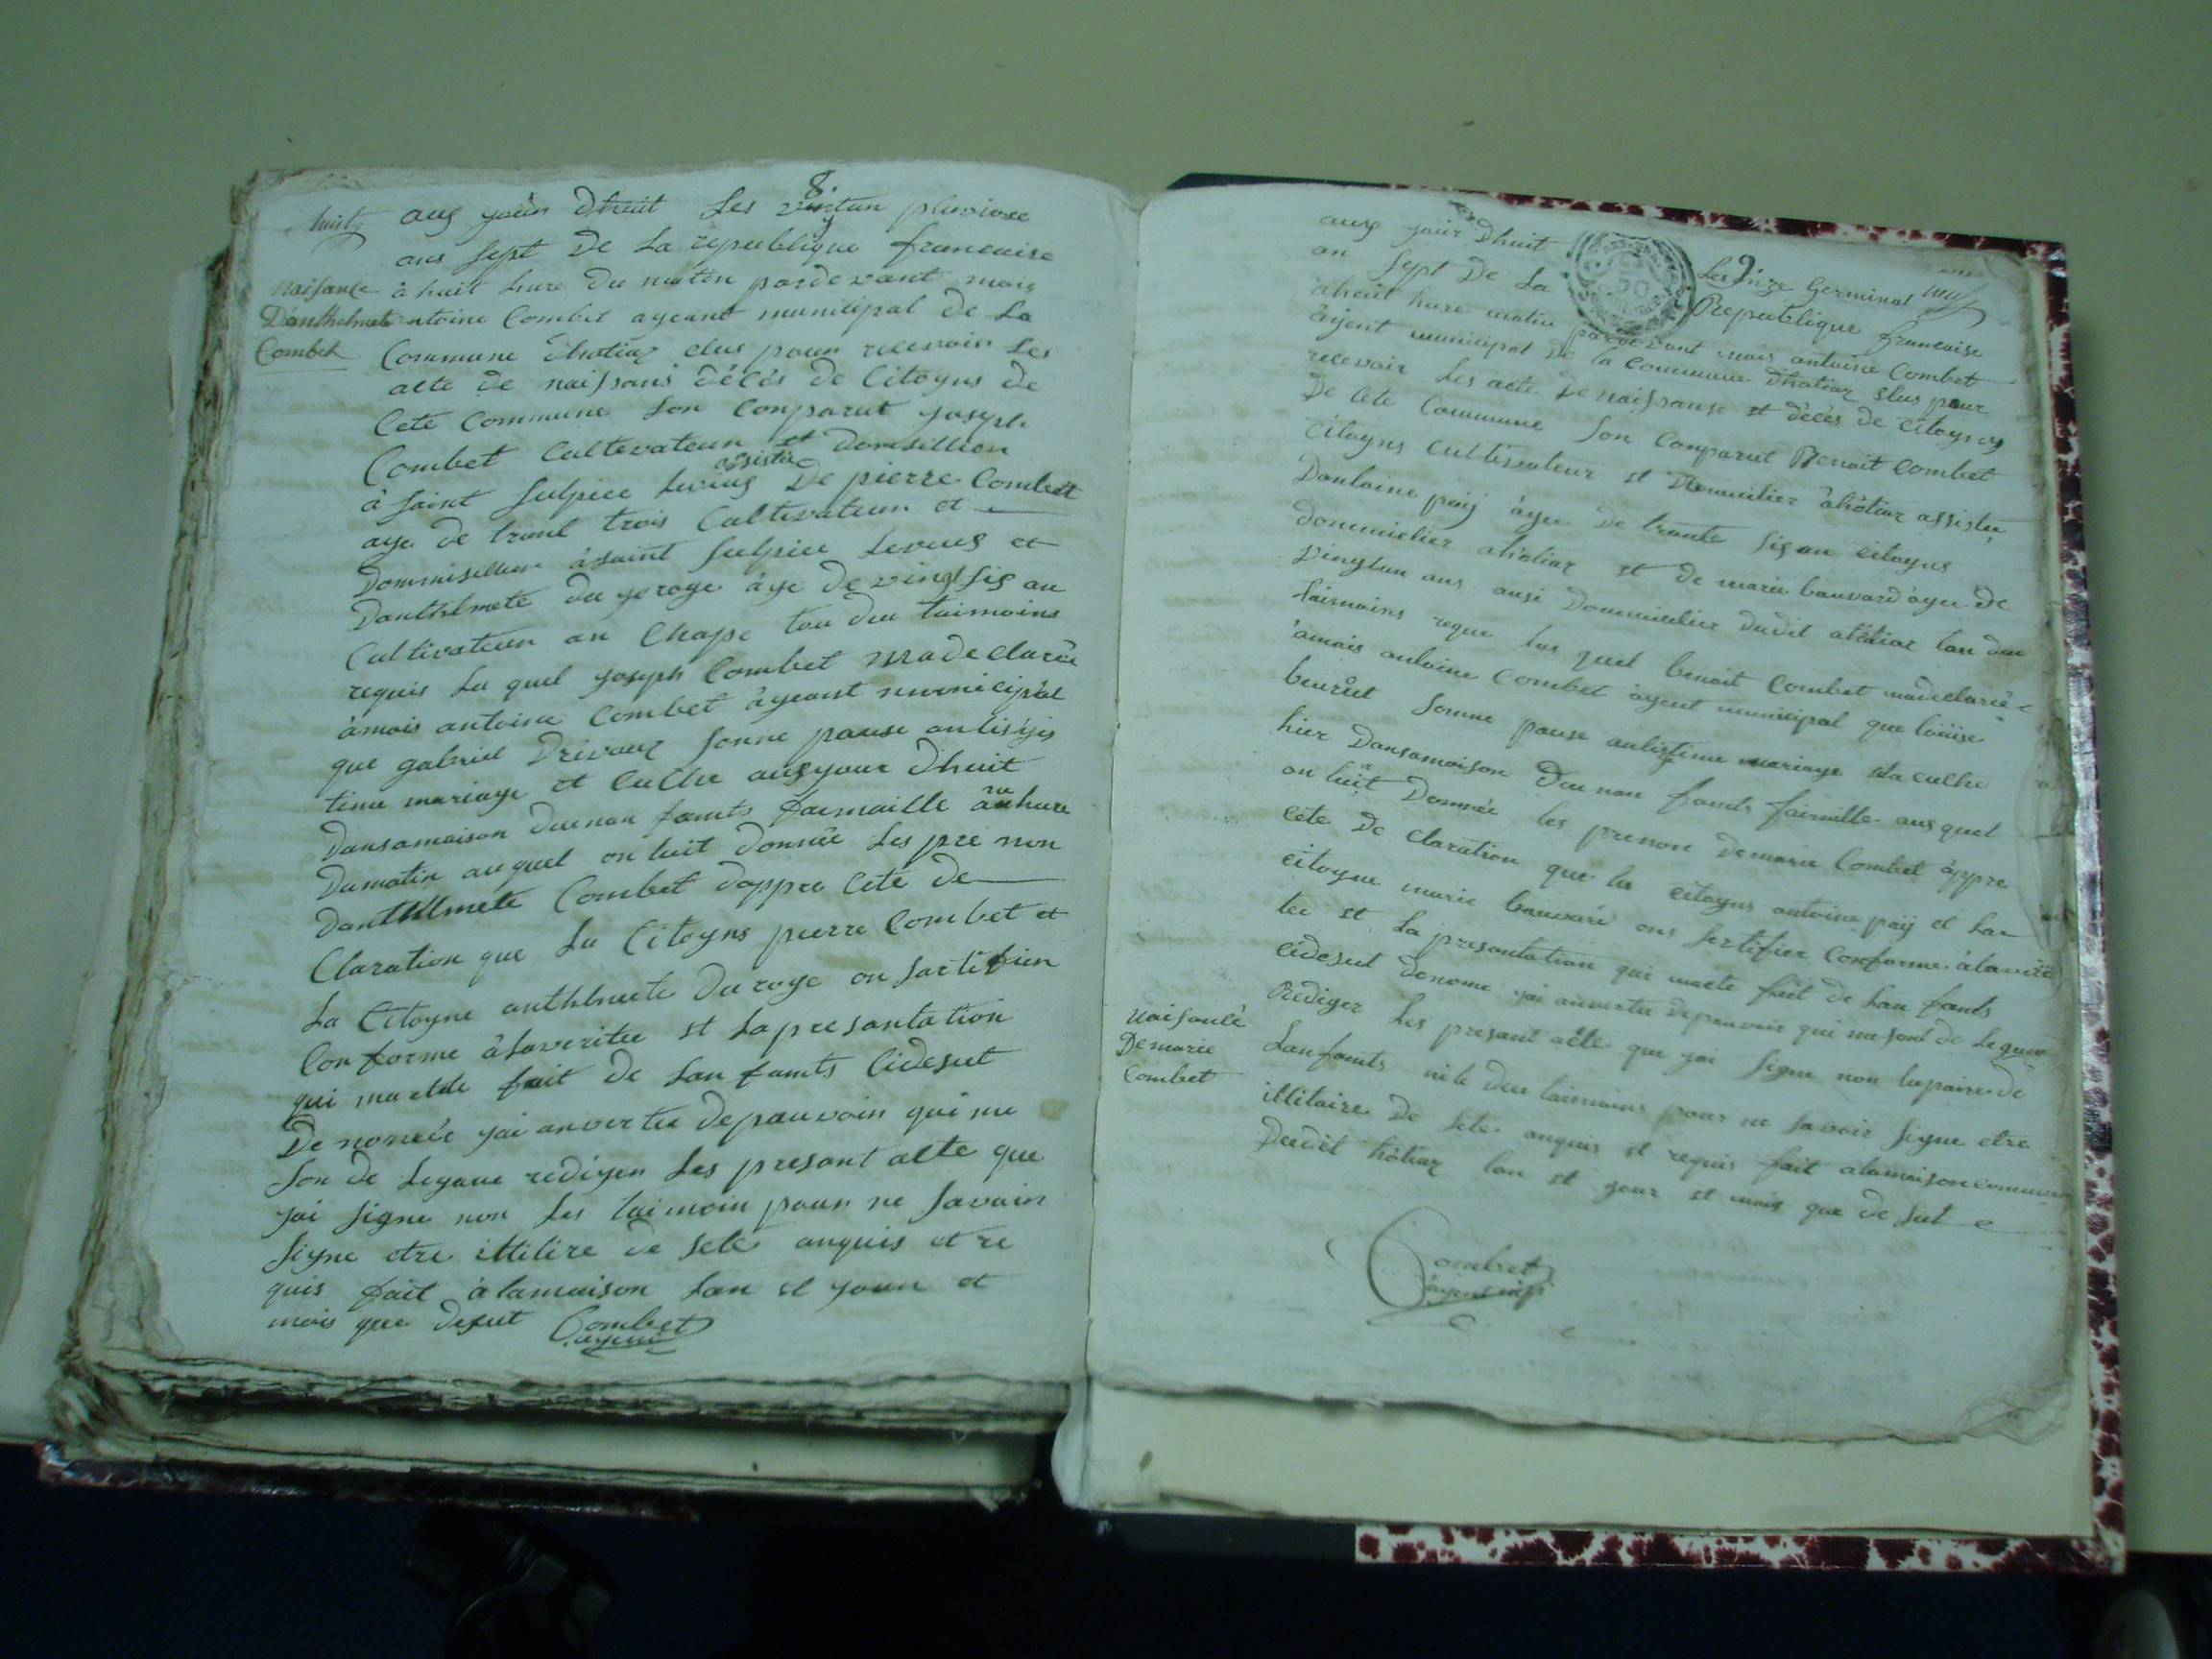 8
huit
aug yoùn dhuit Les vintun pluviose
ans sept De La republique francaise
à huit hure du maten pardevant mois
antoine Combet ageant municipal de La
Commune dhotiaz elus pour recevoir Les
acte de naissans décés de Citoyns de
Cete Commune Son Conparut yoseph
Combet Cultevateur et domisillion
à saint sulpice Levieus assistée De pierre Combet
age de trant trois Cultivateur et
Dommisillier àsaint sulpice Levieus et
Danthelmete du yeroge àge de vingt sis an
Cultivateur an Chape tou deu taimoins
requis Le quel yoseph Combet madeclarée
àmois antoine Combet àgeant municipal
que gabriel Drivauz sonne pause anlisijis
time mariage et Culhe augyour dhuit
Dansamaison dunan fants faimaille à hure
Dumatin auquel on luit donnée Les pre non
Danthelmete Combet dappre Cete de
Claration que La Citoyns pierre Combet et
La Citoyne anthelmete Duroge on sartifien
Conforme àlaveritee et La presantation
qui ma etde fait de Lan fants Cidesut
De nomée yai anvertu depauvoin qui me
Son de Legaue redigen Les presant acte que
yai signe non Les taimoin poun ne savoin
signe etre illitire de sete anquis et re
quis fait àlamaison Lan et youn et
mois que desut Combet
agent
naisance
Danthelmete
Combet
9
neuf
aug yoùr dhuit Les onze Germinal
an sept De La Republique francaise
àheut hure matin pardevant mois antoine Combet
àgent municipal de la commune dhotiaz Elus pour
recevoir Les acte De naissanse et décés de Citoyns
De Cete Commune Son Conparut Benoit Combet
Citoyns Cultivateur et Dommicilier àhotiaz assistée
Dantoine paij àgee De trante sis an Citoyns
dommicilier ahotiaz et de marie bauvard àgee De
vingtun ans ausi Dommicilier dudit ahotiaz tou deu
taimoins reque Les quel benoit Combet madeclarée
àmois antoine Combet àgent municipal que loüise
beurùet sonne pause anlisgtime mariage eta culhe
hier Dansamoison Dunan fants faimille aus quel
on luit Donnée les prenon Demarie Combet àppre
Cete De Claration que les Citoyns antoine paij et Lan
Citoyne marie bauvard ons sertifier Conforme àlaverite
tee et La presantation qui maete fait de Lan fants
Cidesut denome yai anvertu depouvoir qui me sont de Legaue
Rediger Les presant acte que yai signe non lepaire de
Lanfants nile deu taimoins pour ne savoir signe etre
illitaire De sete anquis et requis fait alamaison commune
Dudit hótiaz lan et your et mois que de sut
Combet
àgent
naisance
De marie
Combet